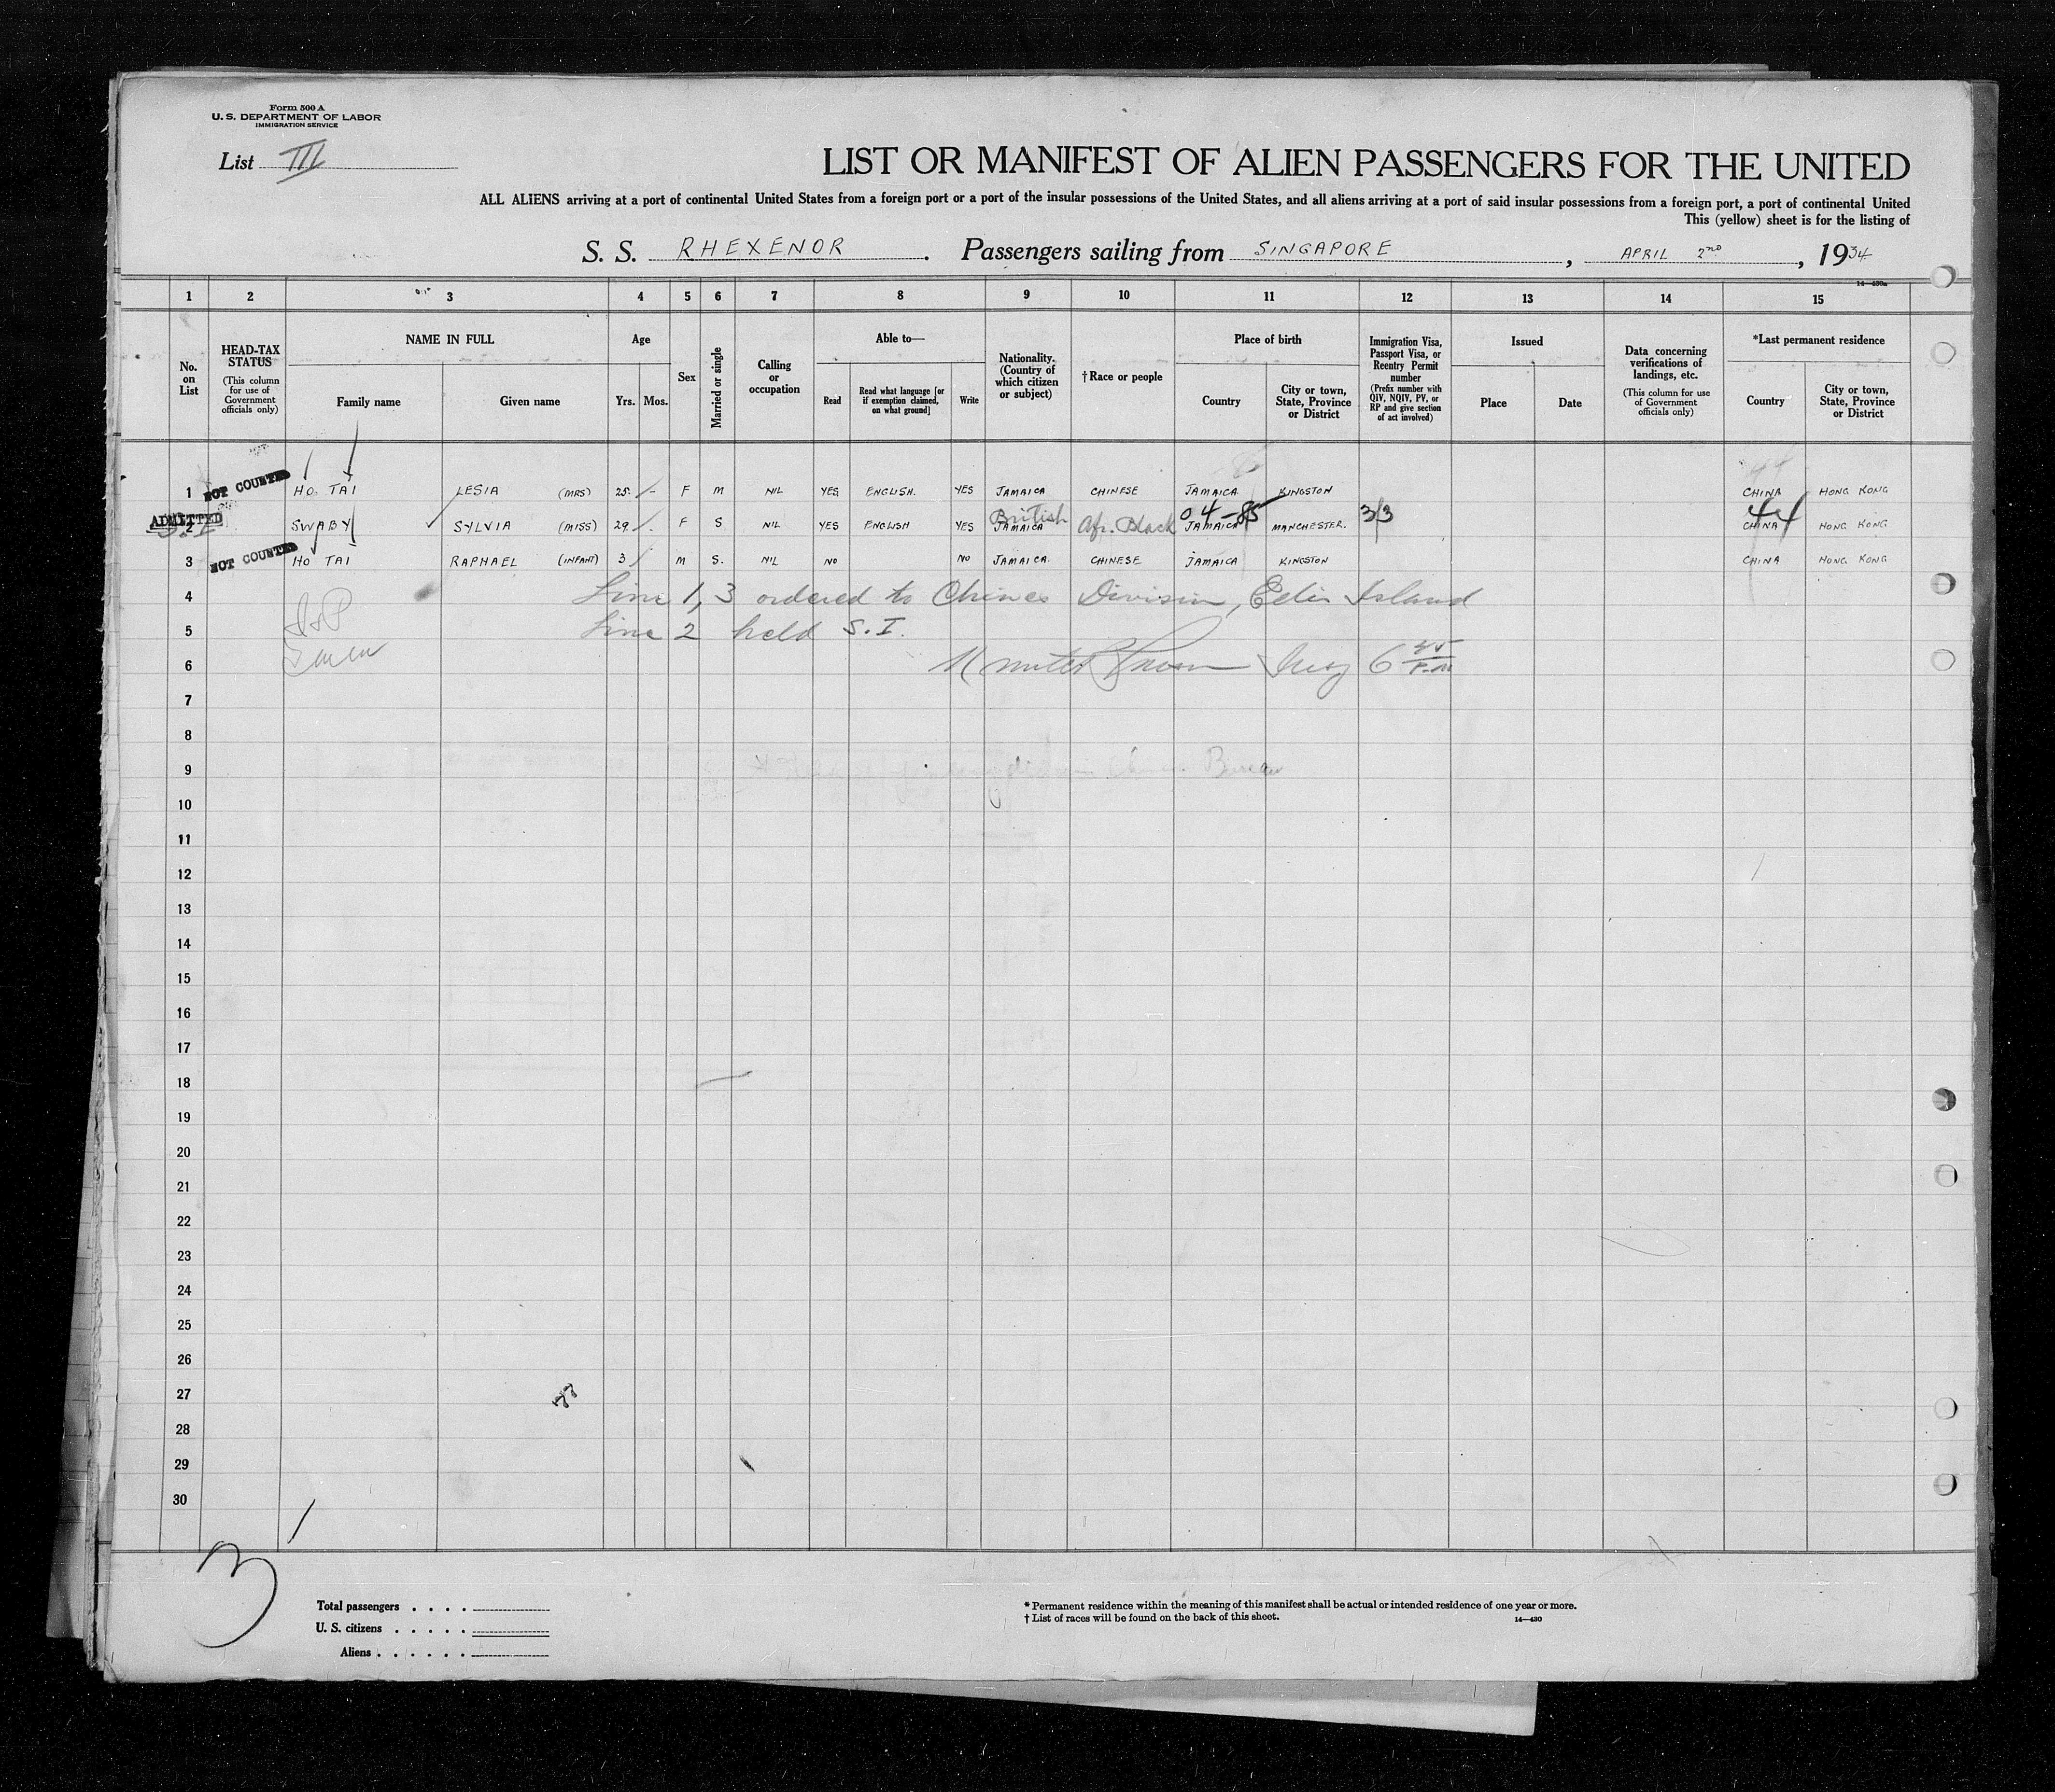 Form 500 A
U. S. DEPARTMENT OF LABOR
IMMIGRATION SERVICE
List III
LIST OR MANIFEST OF ALIEN PASSENGERS FOR THE UNITED
ALL ALIENS arriving at a port of continental United States from a foreign port or a port of the insular possessions of the United States, and all aliens arriving at a port of said insular possessions from a foreign port, a port of continental United
This (yellow) sheet is for the listing of
S. S. RHEXENOR. Passengers sailing from SINGAPORE, APRIL 2nd, 1934
14—430a
1 2 3 4 5 6 7 8 9 10 11 12 13 14 15
No. on List
HEAD-TAX STATUS (This column for use of Government officials only)
NAME IN FULL
Family name
Given name
Age
Yrs. Mos.
Sex
Married or single
Calling or occupation
Able to—
Read
Read what language [or if exemption claimed, on what ground]
Write
Nationality. (Country of which citizen or subject)
†Race or people
Place of birth
Country
City or town, State, Province or District
Immigration Visa, Passport Visa, or Reentry Permit number (Prefix number with QIV, NQIV, PV, or RP and give section of act involved)
Issued
Place
Date
Data concerning verifications of landings, etc. (This column for use of Government officials only)
*Last permanent residence
Country
City or town, State, Province or District
1 NOT COUNTED HO TAI LESIA (MRS) 25 F M NIL YES ENGLISH. YES JAMAICA CHINESE JAMAICA KINGSTON CHINA HONG KONG
British 04-85 3/3 44
ADMITTED 2 S.I SWABY SYLVIA (MISS) 29 F S NIL YES ENGLISH YES JAMAICA Afr. Black JAMAICA MANCHESTER. CHINA HONG KONG
3 NOT COUNTED HO TAI RAPHAEL (INFANT) 3 M S. NIL NO NO JAMAICA. CHINESE JAMAICA KINGSTON CHINA HONG KONG
4 Line 1, 3 ordered to Chines Division, Ellis Island
5 Line 2 held S. I.
6 May 6 45 P.M
7
8
9 Bureau
10
11
12
13
14
15
16
17
18
19
20
21
22
23
24
25
26
27
28
29
30
3
Total passengers . . . .
U. S. citizens . . . . .
Aliens . . . . . .
* Permanent residence within the meaning of this manifest shall be actual or intended residence of one year or more.
† List of races will be found on the back of this sheet.
14—430